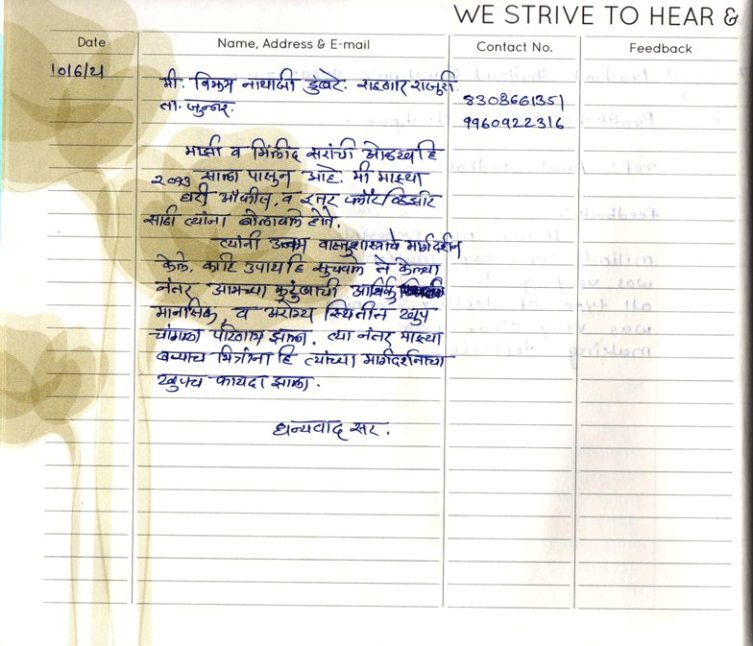 WE STRIVE TO HEAR &
Date Name, Address & E-mail Contact No. Feedback
10/6/21 मी. विक्रम नाथाजी डुंबरे. राजुरी.
ता. जुन्नर.
8308661351
9960922316
माझी व मिलींद सरांची ओळख हि
साला पासुन आहे. मी माझ्या
घरी ऑफीस, व इतर प्लॉट व्हिजीट
साठी त्यांना बोलावले होते.
त्यांनी उत्तम वास्तुशास्त्राचे मार्गदर्शन
केले. काहि उपायहि सुचवले ते केल्या
नंतर आमच्या कुटुंबाची आर्थिक
मानसिक, व आरोग्य स्थितीत खुप
चांगला परिणाम झाला. त्या नंतर माझ्या
बऱ्याच मित्रांना हि त्यांच्या मार्गदर्शनाचा
खुपच फायदा झाला.
धन्यवाद सर.